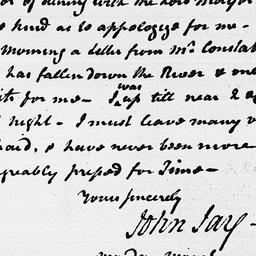 of dining with the Lord Mayor
kind as to appologize for me –
morning a letter from Mr. Constab
has fallen down the River & me
for me – I was up till near 2 o
night – I must leave many
said, & have never been more
greeably pressed for Time –
Yours sincerely
John Jay –